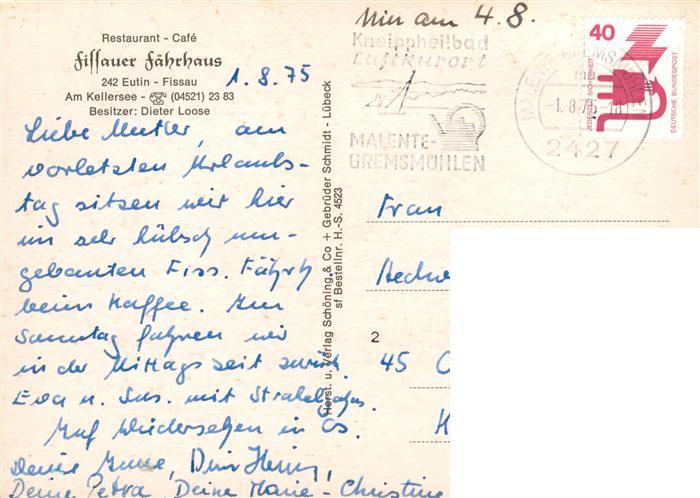 Min am 4.8.
Restaurant - Café
Fissauer Fährhaus
242 Eutin - Fissau
Am Kellersee - ☎ (04521) 23 83
Besitzer: Dieter Loose
1.8.75
Liebe Mutter, am
vorletzten Urlaubs-
tag sitzen wir hier
im sehr hübsch um-
gebauten Fiss. Fährh
beim Kaffee. Am
Samstag fahren wir
in der Mittagszeit zurück.
Eva u. Sus. mit
Auf Wiedersehen in Os.
Deine Dein
Deine Petra Deine Marie-Christine
Herst. u. Verlag Schöning & Co + Gebrüder Schmidt - Lübeck
sf Bestellnr. H.-S. 4523
Kneippheilbad
Luftkurort
MALENTE-
GREMSMÜHLEN
MALENTE-GREMSMÜHLEN
-1.8.75-18
2427
40
JEDERZEIT SICHERHEIT
DEUTSCHE BUNDESPOST
Frau
2
45